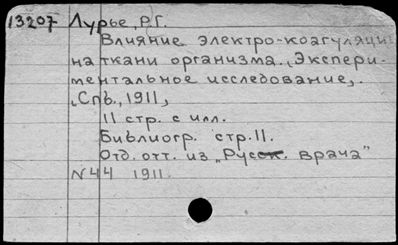 13207 Лурье, Р.Г.
Влияние электро-коагуляции
на ткани организма. Экспери-
ментальное исследование,.
Спб., 1911,
11 стр. с илл.
Библиогр. стр. 11.
Отд. отт. из "Русск. врача"
N44 1911.